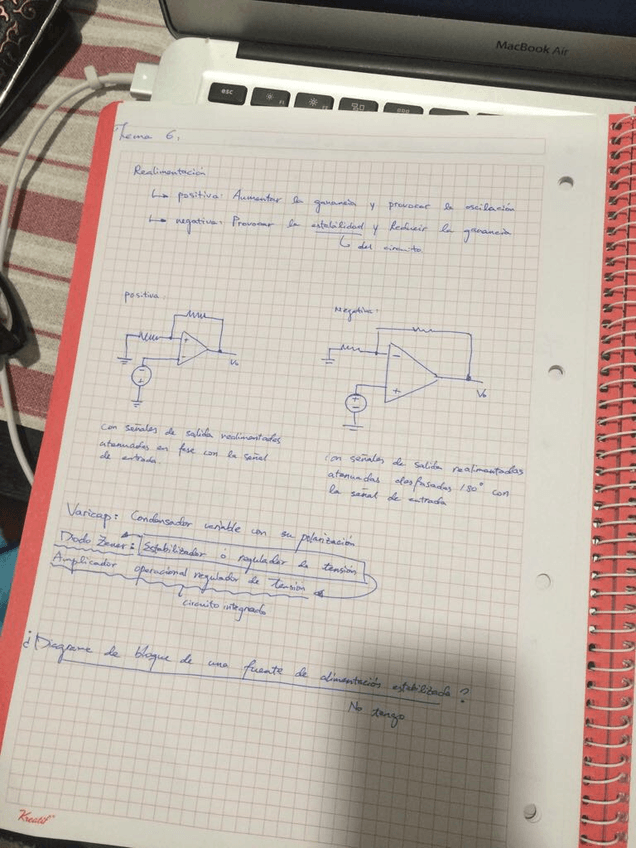 MacBook Air
esc
Thema 6.
Realimentación
positiva: Aumentar la ganancia y provocar la oscilación
negativa: Provocar la estabilidad y Reducir la ganancia
del circuito
positiva
Negativa:
+
-
Vo
-
+
Vo
con señales de salida realimentadas
atenuadas en fase con la señal
de entrada.
con señales de salida realimentadas
atenuadas desfasadas 180° con
la señal de entrada
Varicap: Condensador variable con su polarización
Dodo Zener: Estabilizador o regulador la tensión
Amplicador operacional regulador de tensión
circuito integrado
¿Diagrama de bloque de una fuente de alimentación estabilizada?
No tengo
Kreatif